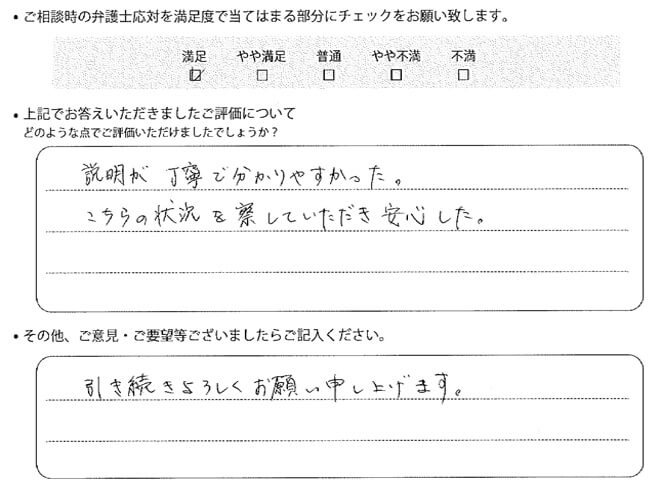 ・ご相談時の弁護士応対を満足度で当てはまる部分にチェックをお願い致します。
満足 やや満足 普通 やや不満 不満
・上記でお答えいただきましたご評価について
どのような点でご評価いただけましたでしょうか?
説明が丁寧で分かりやすかった。
こちらの状況を察していただき安心した。
・その他、ご意見・ご要望等ございましたらご記入ください。
引き続きよろしくお願い申し上げます。